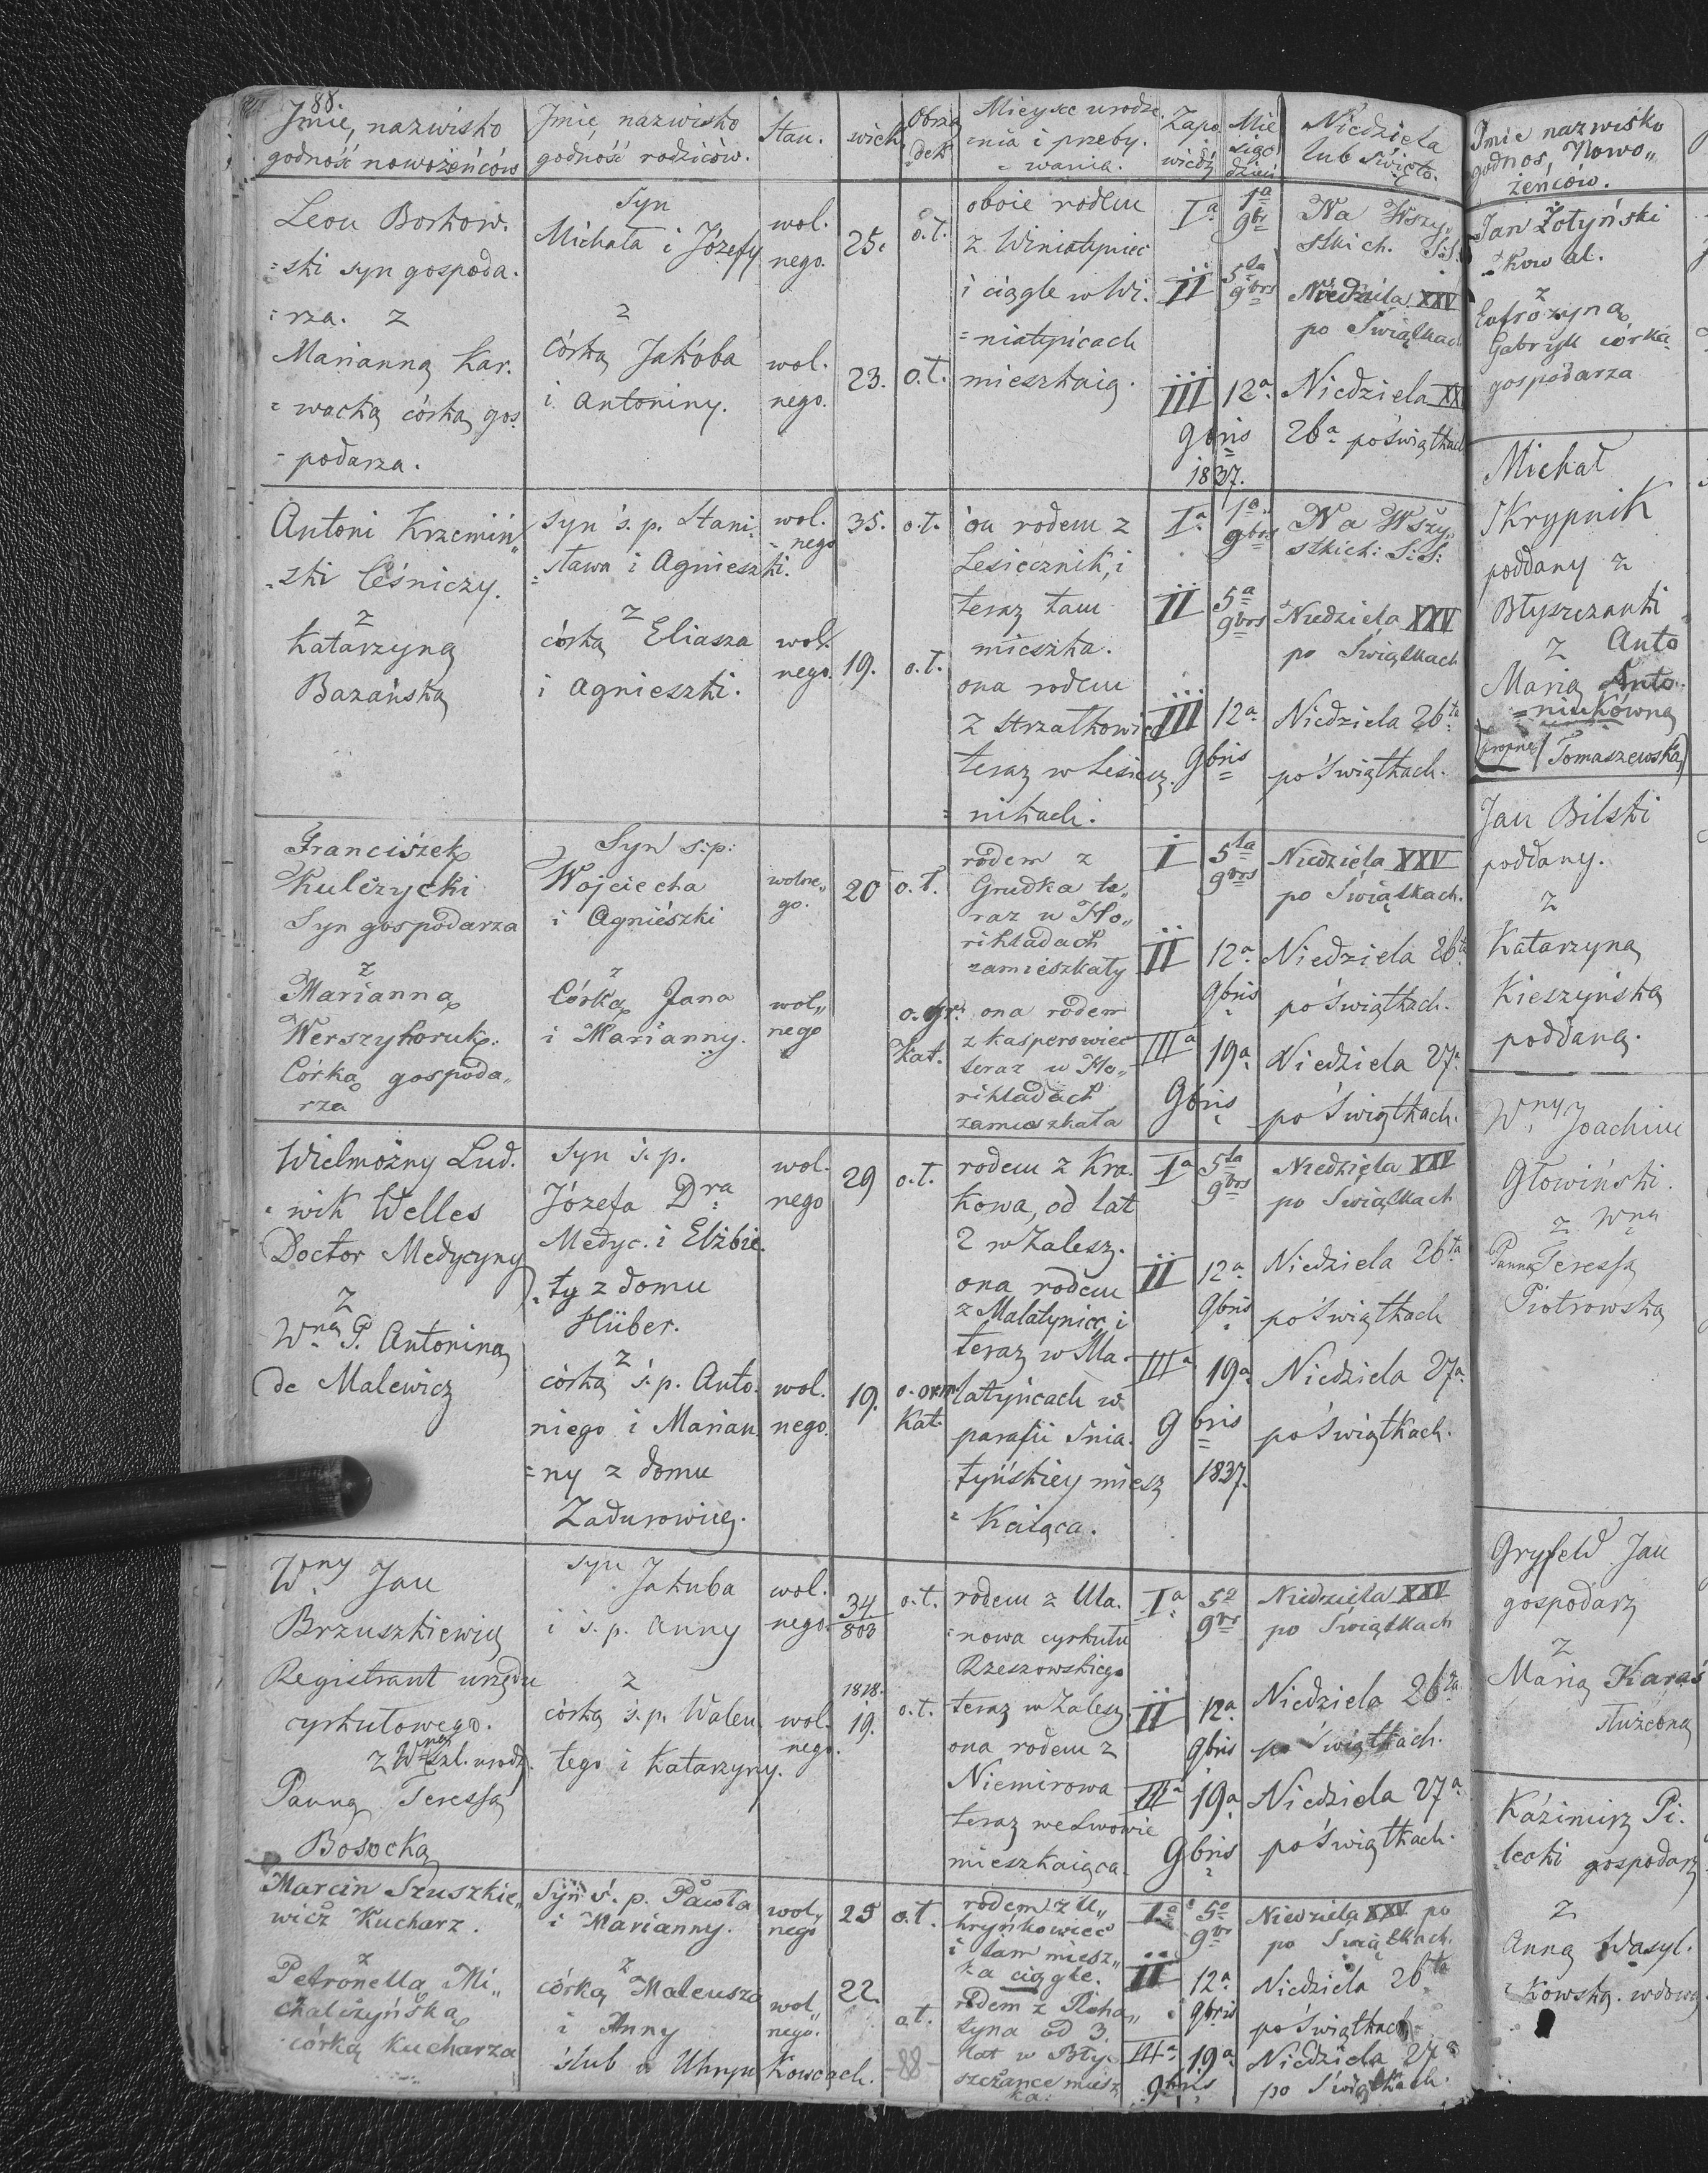 88.
Jmie, nazwisko
godność nowożeńców
Jmie, nazwisko
godność rodziców.
Stan.
wiek
Obrzą
dek
Mieysc urodze
=nia i przeby.
= wania.
Zapo
wiedź
Mie
siąc
dzień
Niedziela
lub święto.
Leon Borkow.
=ski syn gospoda.
=rza. z
Marianną Kar.
=wacką córką gos
=podarza.
Syn
Michała i Józefy
z
córką Jakóba
i Antoniny.
wol.
nego.
wol.
nego.
25.
23.
o.ł.
o.ł.
oboie rodem
z Winiatyniec
i ciągle w Wi.
=niatyńcach
mieszkaią.
Iª 1ª 9br Na Wszy„
stkich. S.S.
II 5ta 9brs Niedziela XXV
po Świątkach
III 12ª Niedziela
9bris 26ª po świątkach
1837.
Antoni Krzemiń„
=ski leśniczy.
z
Katarzyną
Bazańską
syn ś.p. Stani
=sława i Agnieszki.
z
córką Eliasza
i Agnieszki.
wol.
=nego
wol.
nego.
35.
19.
o.ł.
o.ł.
on rodem z
Lesiecznik, i
teraz tam
mieszka.
ona rodem
z Strzałkowiec
teraz w Lesiecz.
=nikach.
Iª 1ª 9brs Na Wszy„
stkich: S:S:
II 5ª 9brs Niedziela XXV
po Świątkach
III 12ª Niedziela 26ta
9bris po świątkach.
Franciszek
Kulczycki
Syn gospodarza
z
Marianną
Werszyhoruk.
Córką gospoda„
rza
Syn ś.p:
Wojciecha
i Agnieszki
z
Córką Jana
i Marianny.
wolne„
go.
wol„
nego
20
o.ł.
o.gr.
Kat.
rodem z
Grudka te„
raz w Ho„
rihladach
zamieszkały
ona rodem
z Kasperowiec
teraz w Ho„
rihladach
zamieszkała
I 5ta 9brs Niedziela XXV
po Świątkach.
II 12ª Niedziela 26ta
9bris po świątkach.
IIIª 19ª Niedziela 27ª
9bris po świątkach.
Wielmożny Lud.
=wik Welles
Doctor Medycyny
z
Wną P. Antoniną
de Malewicz
syn ś.p.
Józefa Dra
Medyc. i Elżbie.
=ty z domu
Hüber.
z
córką ś.p. Anto.
niego i Marian
=ny z domu
Zadurowicz.
wol.
nego
wol.
nego.
29
19.
o.ł.
o.orm
Kat.
rodem z Kra.
kowa, od lat
2 w Zalesz.
ona rodem
z Malatyniec, i
teraz w Ma.
latyńcach w
parafii Śnia.
tyńskiey miesz
=kaiąca.
Iª 5ta 9brs Niedziela XXV
po Świątkach
II 12ª Niedziela 26ta
9bris po świątkach
IIIª 19ª Niedziela 27ª
9bris po świątkach.
1837.
Wny Jan
Brzuszkiewicz
Registrant urzędu
cyrkułowego.
z Wną Szl. urodz.
Panną Teressą
Bosocką
syn
Jakuba
i ś.p. Anny
z
córką ś.p. Walen
tego i Katarzyny.
wol.
nego.
wol.
nego.
34
803
1818.
19.
o.ł.
o.ł.
rodem z Ula.
=nowa cyrkułu
Rzeszowskiego
teraz w Zalesz.
ona rodem z
Niemirowa
teraz we Lwowie
mieszkaiąca.
Iª 5ª 9br Niedziela XXV
po Świątkach
II 12ª Niedziela 26ta
9bris po świątkach.
IIIª 19ª Niedziela 27ª
9bris po świątkach.
Marcin Szuszkie„
wicz Kucharz.
z
Petronella Mi„
chalczyńską
córką kucharza
Syn ś.p. Pawła
i Marianny.
z
córką Mateusza
i Anny
ślub w Uhryn Kowcach.
wol„
nego
wol„
nego.
25
22
o.ł.
o.ł.
-88-
rodem z U„
hryńkowiec
i tam miesz„
ka ciągle.
rodem z Roha„
tyna od 3.
lat w Bły
szczance miesz
ka.
Iª 5ª 9br Niedziela XXV po
po Świątkach.
II 12ª Niedziela 26ta
9bris po świątkach
IIIª 19ª Niedziela 27ª
9bris po świątkach.
Jmie nazwisko
godnoś, Nowo„
żeńców.
Jan Żołyński
Kowal.
z
Eufrozyną
Gabryk córka
gospodarza
Michał
Skrypnik
poddany z
Błyszczanki
z Anto
Marią Anto.
=niukówną
(Tomaszewską)
Jan Bilski
poddany.
z
Katarzyną
Kieszyńską
poddaną.
Wny Joachim
Głowiński.
z Wną
Panną Teressą
Piotrowską
Gryfeld Jan
gospodarz
z
Marią Karaś
służącą
Kazimirz Pi.
lecki gospodarz
z
Anną Wasyl.
=kowską. wdową